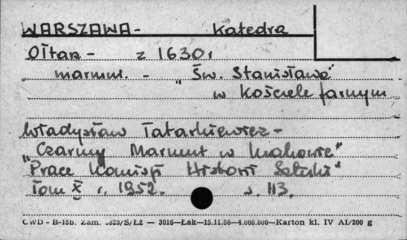 WARSZAWA - Katedra
Ołtarz - z 1630 r
marmur. - "Św. Stanisława"
w Kościele farnym
Władysław Tatarkiewicz -
"Czarny Marmur w Krakowie"
Prace Komisji Historii Sztuki"
tom X r. 1952. s. 113.
CWD - B-15b. Zam. /S/ŁŻ — 3016—Łak—15.11.56—4.000.000—Karton kl. IV A1/200 g